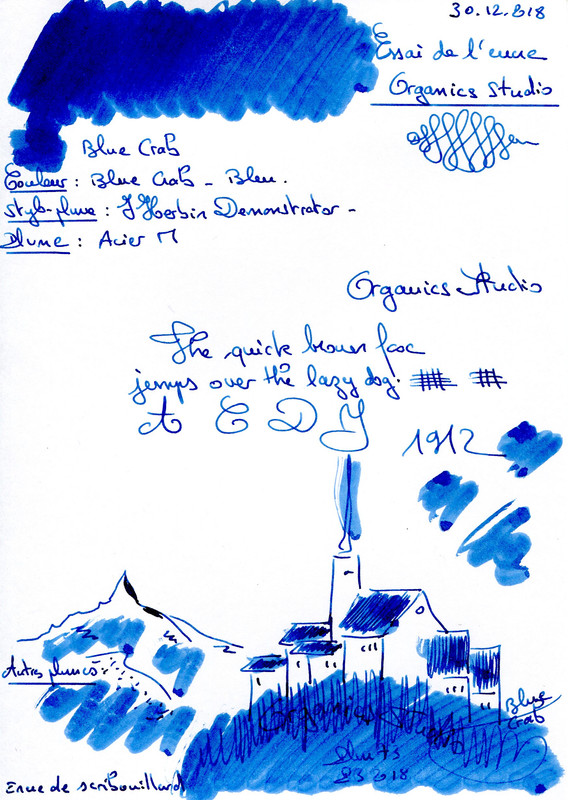 30.12.2018
Essai de l'encre
Organics Studio
Blue Crab
Couleur : Blue Crab - Bleu.
Stylo-plume : J Herbin Demonstrator -
Plume : Acier M
Organics Studio
The quick brown fox
jumps over the lazy dog.
A C D J
1912
Autres plumes :
Organics Studio
Blue
Crab
Encre de scribouillard